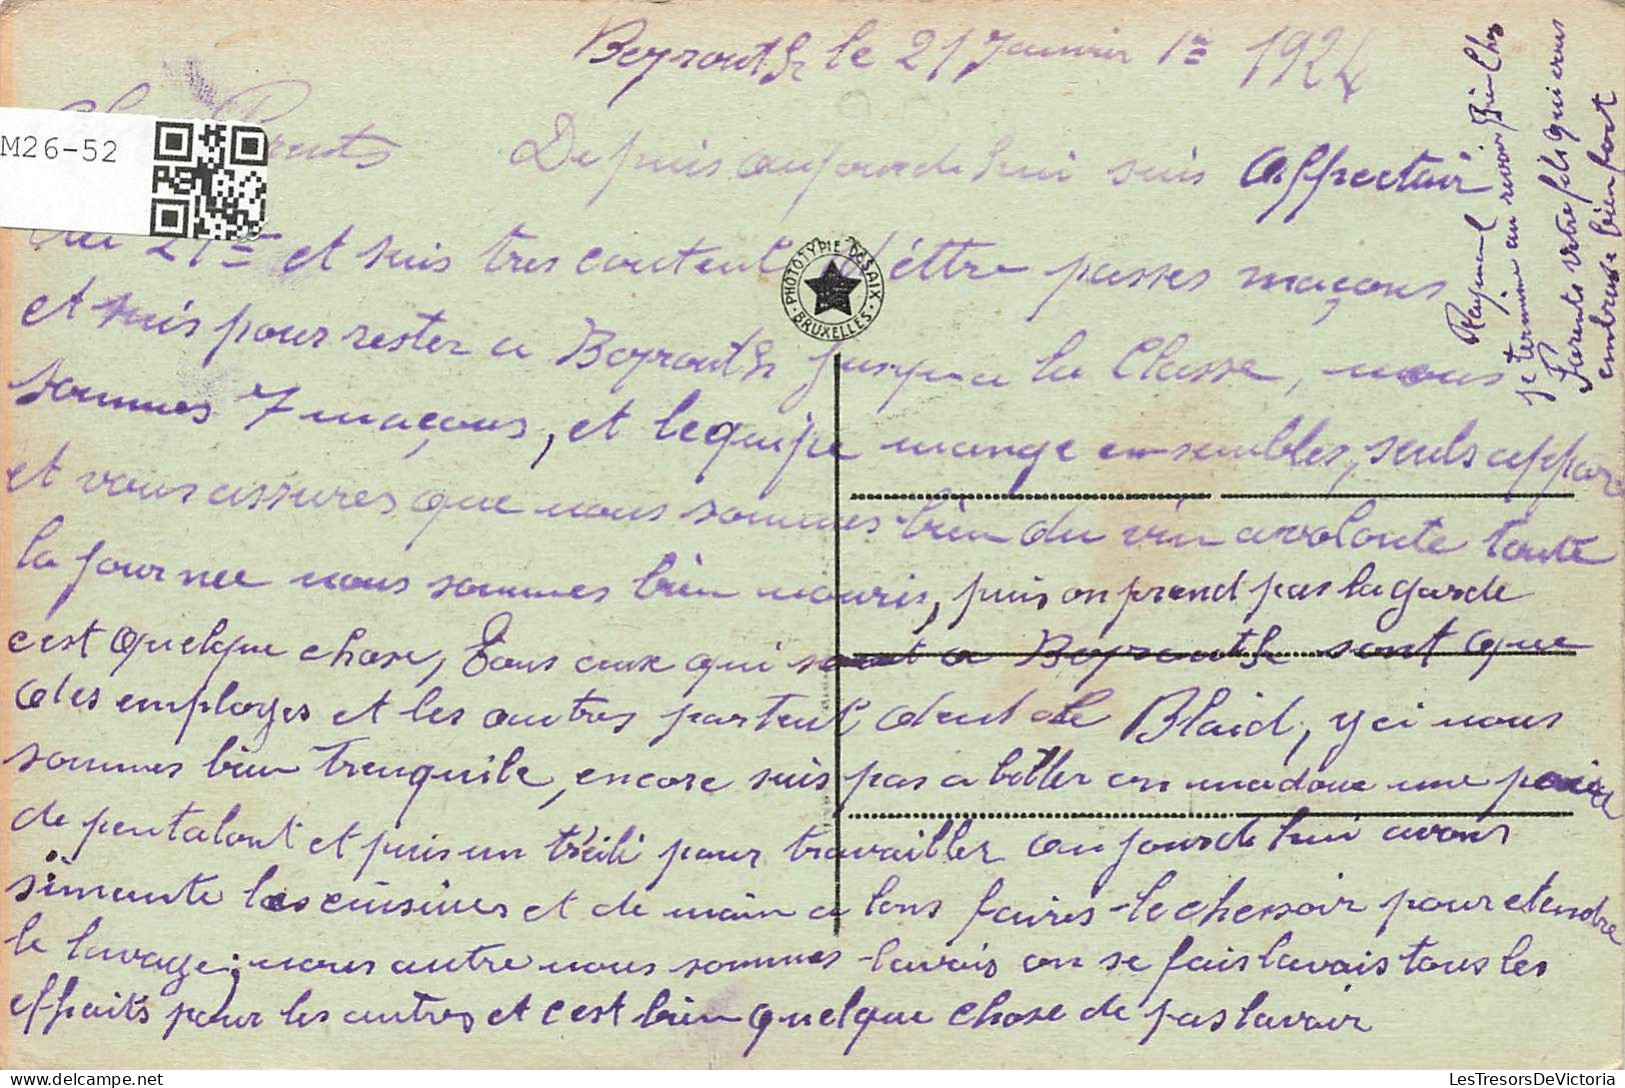 M26-52
Beyrouth le 21 Janvier 1924
Parents Depuis aujourdehui suis affectair
au 21 et suis tres content d'éttre passes maçons
et suis pour rester a Beyrouth jusqua la Classe, nous
sommes 7 maçons, et lequipe mange ensembles, seuls appar
et vous assures que nous sommes bien du vin avolonte toute
la journee nous sommes bien nouris, puis on prend pas la garde
c'est quelque chose, tous ceux qui sont a Beyrouth sont que
des employes et les autres partent dent le Blaid, yci nous
sommes bien trenquile, encore suis pas a biller on ma done une paire
de pentalont et puis un tréili pour travailler aujourdehui avons
simente les cuisines et demain alons faires le chessoir pour etendre
le lavage; nous autre nous sommes lavais on se fais lavais tous les
effaits pour les autres et c'est bien quelque chose de pas lavair
Regiment
je termine au revoir Bien Chers
Parents votre fils qui vous
embrasse bien fort
PHOTOTYPIE DESAIX · BRUXELLES ·
LesTresorsDeVictoria